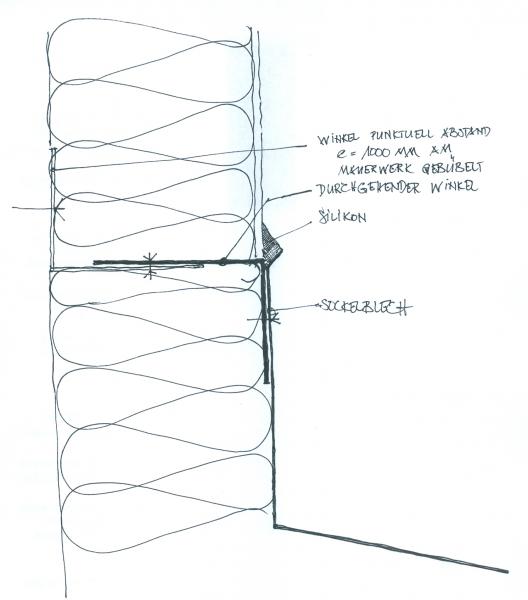 WINKEL PUNKTUELL ABSTAND
e = 1000 MM AM
MAUERWERK GEDÜBELT
DURCHGEHENDER WINKEL
SILIKON
SOCKELBLECH